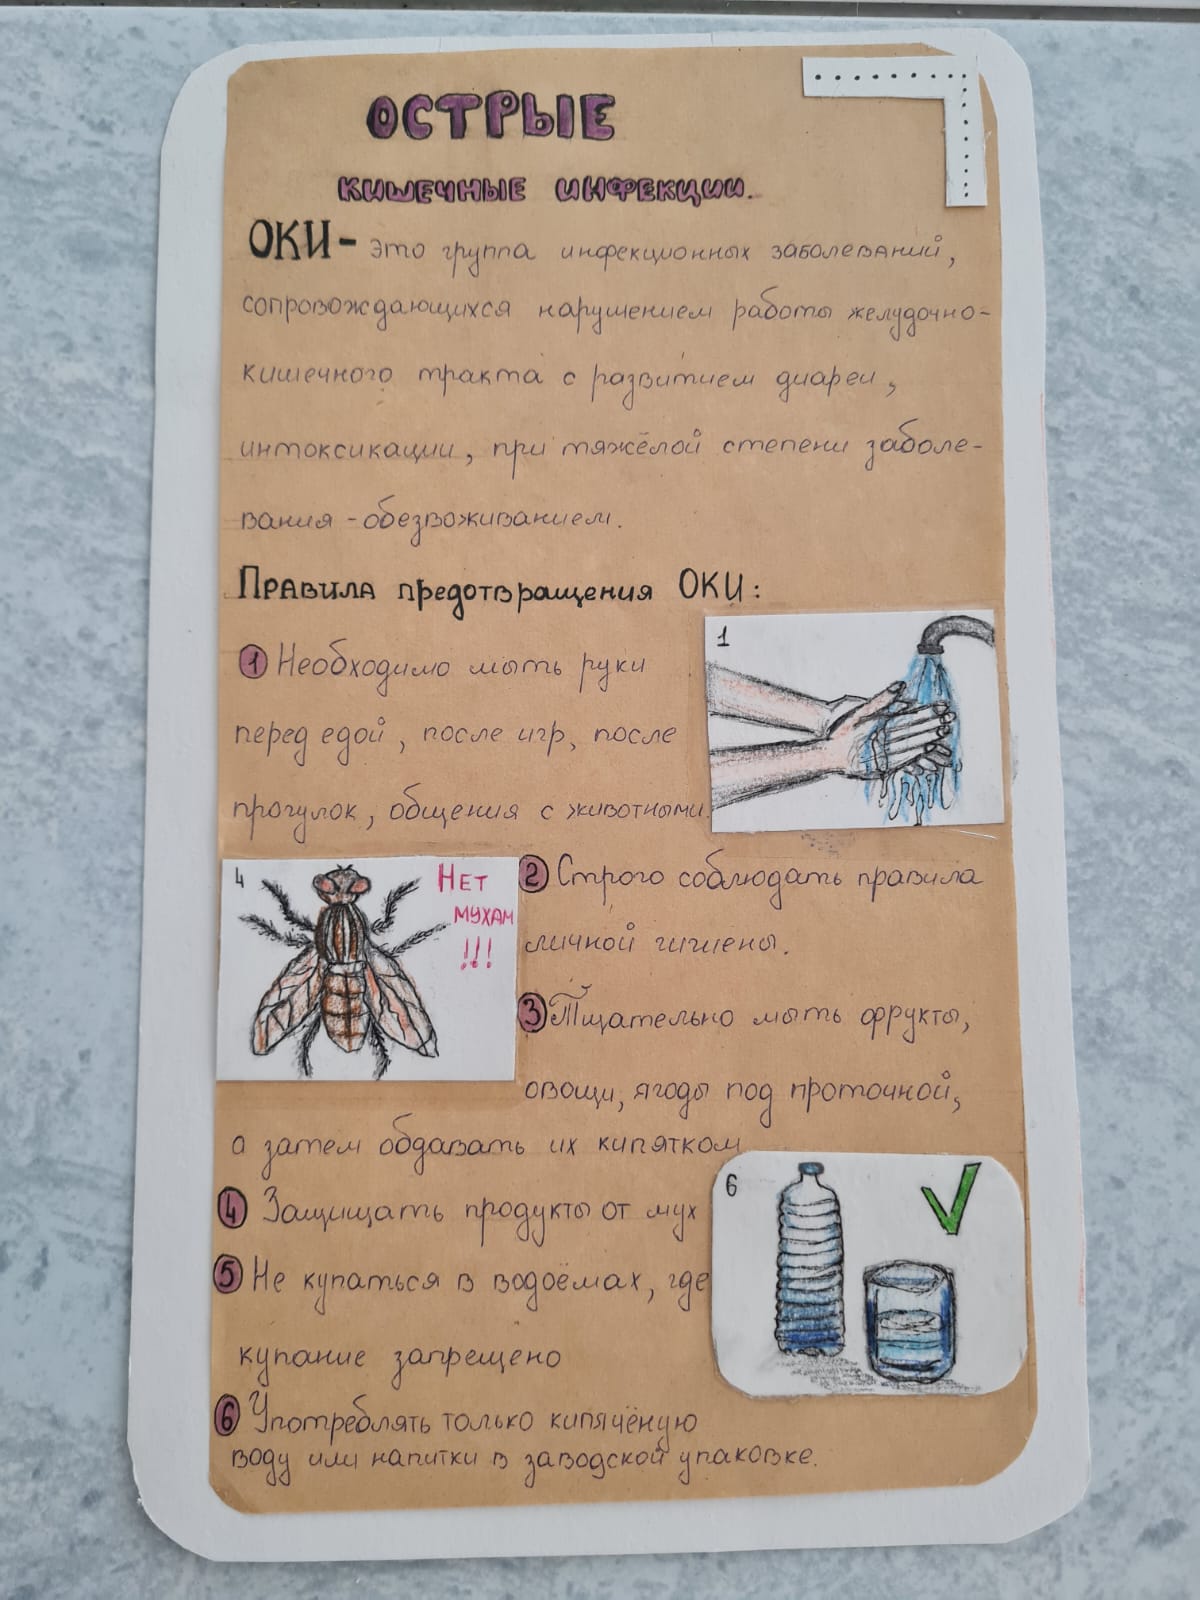 ОСТРЫЕ
КИШЕЧНЫЕ ИНФЕКЦИИ.
ОКИ- это группа инфекционных заболеваний,
сопровождающихся нарушением работы желудочно-
кишечного тракта с развитием диареи,
интоксикации, при тяжёлой степени заболе-
вания - обезвоживанием.
Правила предотвращения ОКИ:
1 Необходимо мыть руки
перед едой, после игр, после
прогулок, общения с животными.
1
4
Нет
мухам
!!!
2 Строго соблюдать правила
личной гигиены.
3 Тщательно мыть фрукты,
овощи, ягоды под проточной,
а затем обдавать их кипятком
4 Защищать продукты от мух
5 Не купаться в водоёмах, где
купание запрещено
6
6 Употреблять только кипячёную
воду или напитки в заводской упаковке.